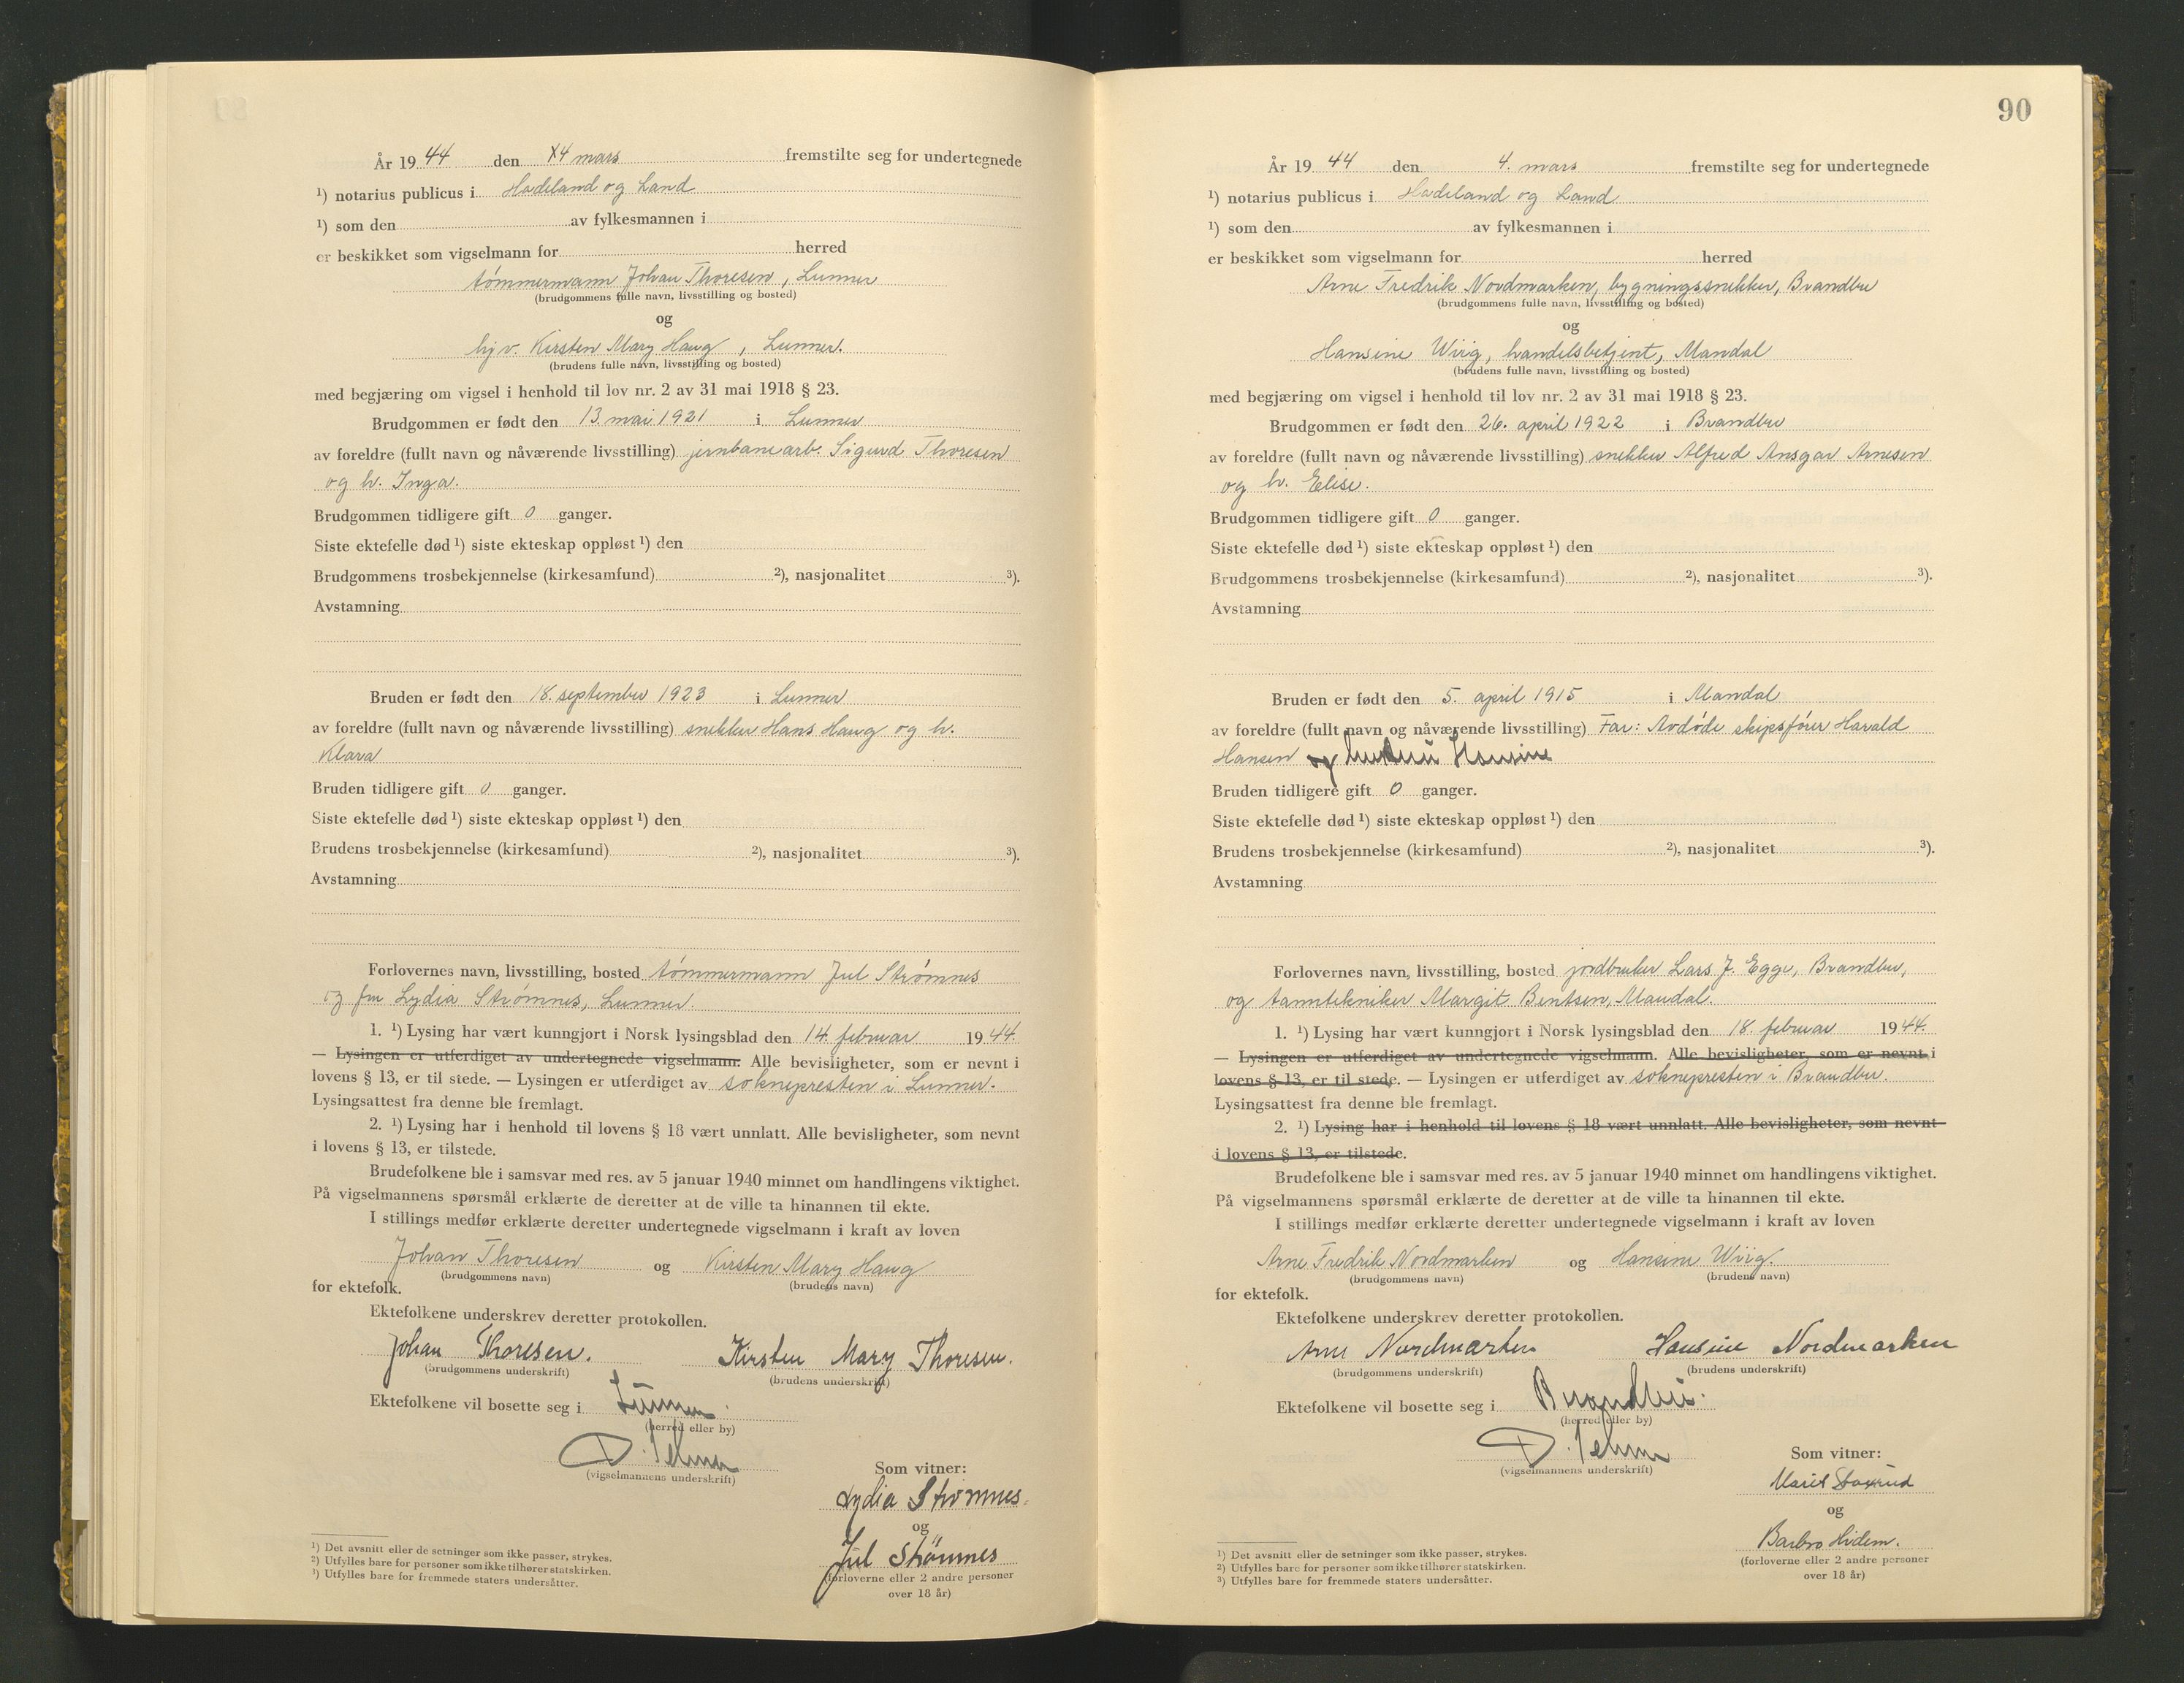 År 1944 den 4 mars fremstilte seg for undertegnede
¹) notarius publicus i Hadeland og Land
¹) som den av fylkesmannen i
er beskikket som vigselmann for herred
tømmermann Johan Thoresen, Lunner
(brudgommens fulle navn, livsstilling og bosted)
og
hj.v. Kirsten Mary Haug, Lunner.
(brudens fulle navn, livsstilling og bosted)
med begjæring om vigsel i henhold til lov nr. 2 av 31 mai 1918 § 23.
Brudgommen er født den 13. mai 1921 i Lunner
av foreldre (fullt navn og nåværende livsstilling) jernbanearb. Sigurd Thoresen
og h. Inga.
Brudgommen tidligere gift 0 ganger.
Siste ektefelle død ¹) siste ekteskap oppløst ¹) den
Brudgommens trosbekjennelse (kirkesamfund) ²), nasjonalitet ³).
Avstamning
Bruden er født den 18. september 1923 i Lunner
av foreldre (fullt navn og nåværende livsstilling) snekker Hans Haug og h.
Klara
Bruden tidligere gift 0 ganger.
Siste ektefelle død ¹) siste ekteskap oppløst ¹) den
Brudens trosbekjennelse (kirkesamfund) ²), nasjonalitet ³).
Avstamning
Forlovernes navn, livsstilling, bosted tømmermann Jul Strømnes
og fru Lydia Strømnes, Lunner.
1. ¹) Lysing har vært kunngjort i Norsk lysingsblad den 14. februar 1944.
— Lysingen er utferdiget av undertegnede vigselmann. Alle bevisligheter, som er nevnt i
lovens § 13, er til stede. — Lysingen er utferdiget av soknepresten i Lunner.
Lysingsattest fra denne ble fremlagt.
2. ¹) Lysing har i henhold til lovens § 18 vært unnlatt. Alle bevisligheter, som nevnt
i lovens § 13, er tilstede.
Brudefolkene ble i samsvar med res. av 5 januar 1940 minnet om handlingens viktighet.
På vigselmannens spørsmål erklærte de deretter at de ville ta hinannen til ekte.
I stillings medfør erklærte deretter undertegnede vigselmann i kraft av loven
Johan Thoresen og Kirsten Mary Haug
(brudgommens navn) (brudens navn)
for ektefolk.
Ektefolkene underskrev deretter protokollen.
Johan Thoresen. Kirsten Mary Thoresen.
(brudgommens underskrift) (brudens underskrift)
Ektefolkene vil bosette seg i Lunner.
(herred eller by)
(vigselmannens underskrift)
Som vitner:
Lydia Strømnes.
og
Jul Strömnes
(forloverne eller 2 andre personer
over 18 år)
¹) Det avsnitt eller de setninger som ikke passer, strykes.
²) Utfylles bare for personer som ikke tilhører statskirken.
³) Utfylles bare for fremmede staters undersåtter.
90
År 1944 den 4. mars fremstilte seg for undertegnede
¹) notarius publicus i Hadeland og Land
¹) som den av fylkesmannen i
er beskikket som vigselmann for herred
Arne Fredrik Nordmarken, bygningssnekker, Brandbu
(brudgommens fulle navn, livsstilling og bosted)
og
Hansine Wiig, handelsbetjent, Mandal
(brudens fulle navn, livsstilling og bosted)
med begjæring om vigsel i henhold til lov nr. 2 av 31 mai 1918 § 23.
Brudgommen er født den 26. april 1922 i Brandbu
av foreldre (fullt navn og nåværende livsstilling) snekker Alfred Ansgar Arnesen
og h. Elise.
Brudgommen tidligere gift 0 ganger.
Siste ektefelle død ¹) siste ekteskap oppløst ¹) den
Brudgommens trosbekjennelse (kirkesamfund) ²), nasjonalitet ³).
Avstamning
Bruden er født den 5. april 1915 i Mandal
av foreldre (fullt navn og nåværende livsstilling) Far: Avdøde skipsfører Harald
Hansen og hustru Hansine
Bruden tidligere gift 0 ganger.
Siste ektefelle død ¹) siste ekteskap oppløst ¹) den
Brudens trosbekjennelse (kirkesamfund) ²), nasjonalitet ³).
Avstamning
Forlovernes navn, livsstilling, bosted jordbruker Lars J. Egge, Brandbu,
og tanntekniker Margit Bentsen, Mandal.
1. ¹) Lysing har vært kunngjort i Norsk lysingsblad den 18. februar 1944.
— Lysingen er utferdiget av undertegnede vigselmann. Alle bevisligheter, som er nevnt i
lovens § 13, er til stede. — Lysingen er utferdiget av soknepresten i Brandbu.
Lysingsattest fra denne ble fremlagt.
2. ¹) Lysing har i henhold til lovens § 18 vært unnlatt. Alle bevisligheter, som nevnt
i lovens § 13, er tilstede.
Brudefolkene ble i samsvar med res. av 5 januar 1940 minnet om handlingens viktighet.
På vigselmannens spørsmål erklærte de deretter at de ville ta hinannen til ekte.
I stillings medfør erklærte deretter undertegnede vigselmann i kraft av loven
Arne Fredrik Nordmarken og Hansine Wiig.
(brudgommens navn) (brudens navn)
for ektefolk.
Ektefolkene underskrev deretter protokollen.
Arne Nordmarken Hansine Nordmarken
(brudgommens underskrift) (brudens underskrift)
Ektefolkene vil bosette seg i Brandbu.
(herred eller by)
(vigselmannens underskrift)
Som vitner:
Marit
og
Barbro Hidem.
(forloverne eller 2 andre personer
over 18 år)
¹) Det avsnitt eller de setninger som ikke passer, strykes.
²) Utfylles bare for personer som ikke tilhører statskirken.
³) Utfylles bare for fremmede staters undersåtter.